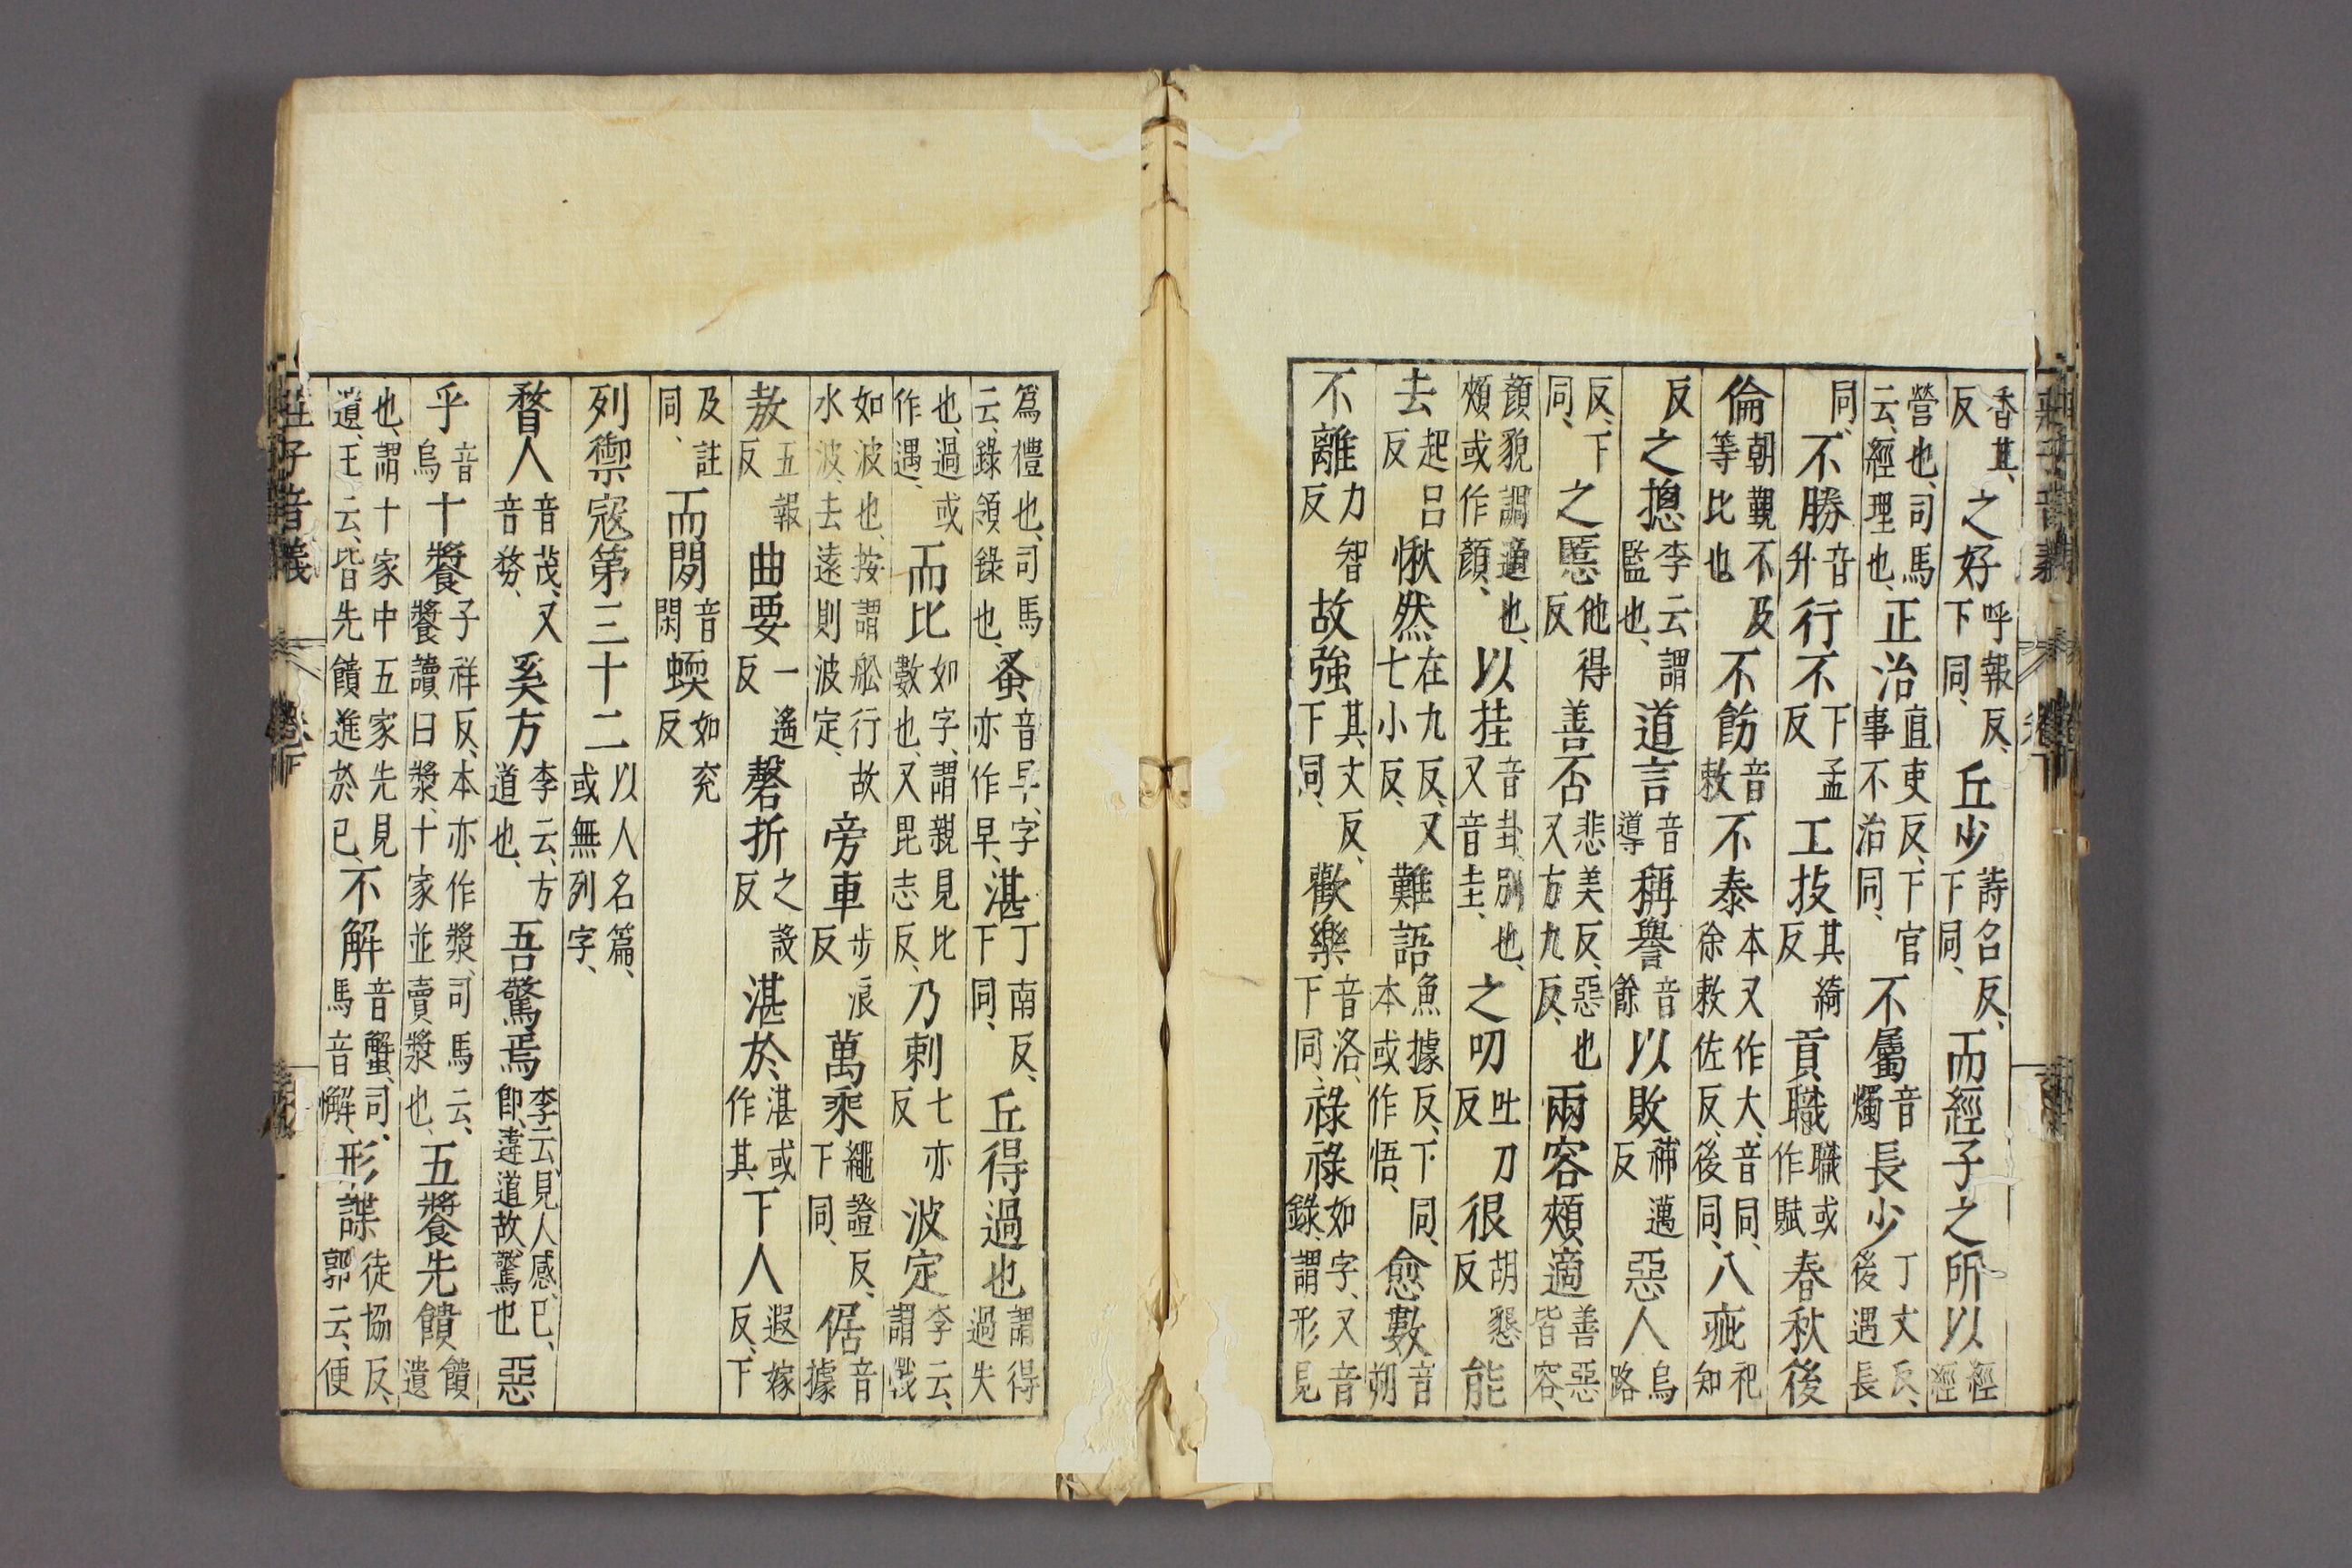 香其、反之好呼報反、下同、丘少詩名反、下同、而經子之所以經經
營也、司馬云、經理也、正治直吏反、下官事不治同、不屬音燭長少丁丈反、後遇長
同、不勝音升行不下孟反工技其綺反貢職職或作賦春秋後
倫朝覲不及等比也不飭音敕不泰本又作大、音同、徐敕佐反、後同、八疵祀知
反之摠李云謂監也、道言音導稱譽音餘以敗補邁反惡人烏路
反、下同、之慝他得反善否悲美反、惡也又方九反、兩容頰適善惡皆容、
顏貌調適也、頰或作顏、以挂音卦、別也、又音圭、之叨吐刀反很胡懇反能
去起呂反愀然在九反、又七小反、難語魚據反、下同、本或作悟、愈數音朔
不離力智反故強其丈反、下同、歡樂音洛、下同、祿祿如字、又音錄、謂形見
爲禮也、司馬云、錄領錄也、蚤音早、字亦作早、湛丁南反、下同、丘得過也謂得過失
也、過或作遇、而比如字、謂親見比數也、又毘志反、乃刺七亦反波定李云、謂戰
如波也、按謂舩行故水波、去遠則波定、旁車步浪反萬乘繩證反、下同、倨音據
敖五報反曲要一遙反磬折之設反湛於湛或作其下人遐嫁反、下
及註同、而閒音閑蝡如兖反
列禦寇第三十二以人名篇、或無列字、
瞀人音茂、又音務、奚方李云、方道也、吾驚焉李云、見人感已、卽違道故驚也惡
乎音烏十餥子祥反、本亦作漿、司馬云、餥讀曰漿、十家並賣漿也、五餥先饋饋遺
也、謂十家中五家先見遺、王云、皆先饋進於已、不解音蟹、司馬音懈、形諜徒協反、郭云、便
莊子音義 卷下